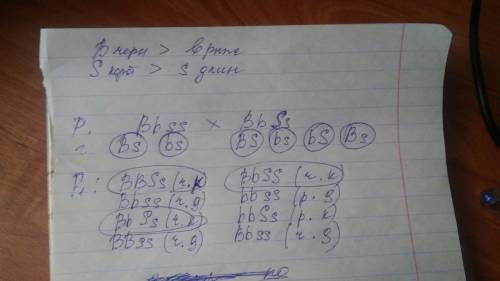 B черн > b рыже
S корот > s длин
P. Bbss × BbSs
г. Bs bs BS bs bS Bs
F₁: BBSs (ч.к) BbSs (ч.к)
Bbss (ч.д) bbss (р.д)
BbSs (ч.к) bbSs (р.к)
BBss (ч.д) Bbss (ч.д)